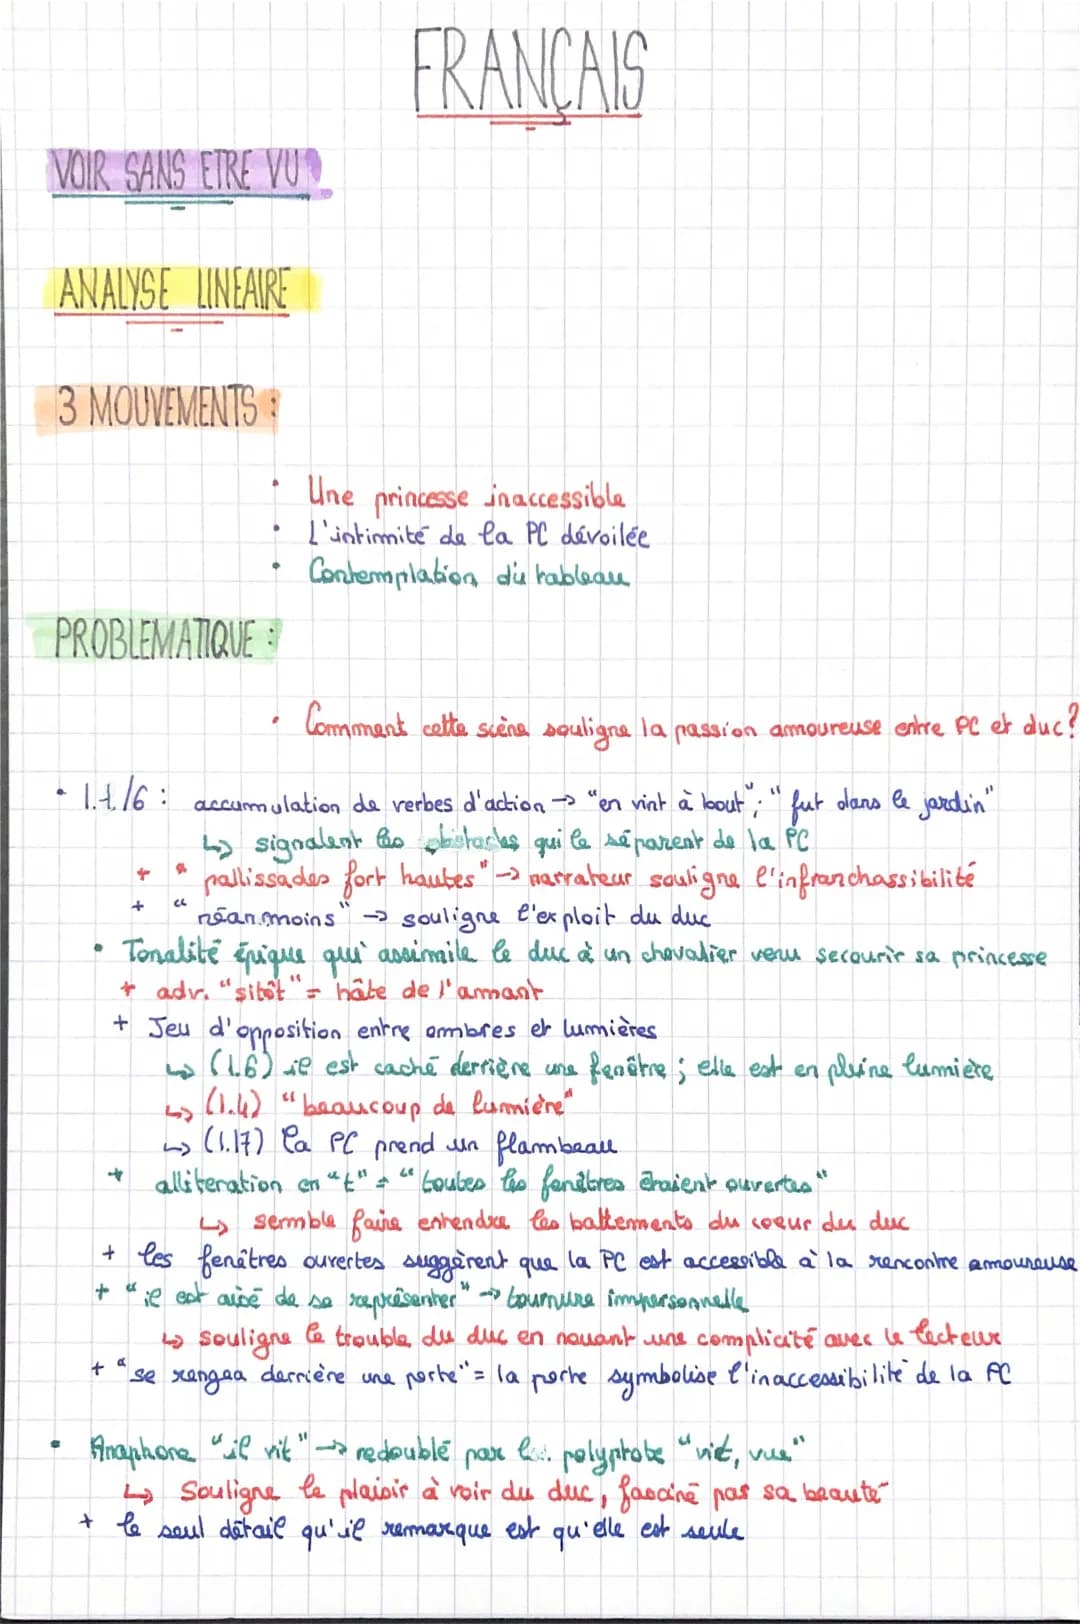 FRANÇAIS
VOIR SANS ETRE VU
ANALYSE LINEAIRE
3 MOUVEMENTS :
• Une princesse inaccessible
• L'intimité de la PC dévoilée
• Contemplation du tableau
PROBLEMATIQUE :
• Comment cette scène souligne la passion amoureuse entre PC et duc?
• l.1/6 : accumulation de verbes d'action → "en vint à bout"; "fut dans le jardin"
↳ signalent les obstacles qui le séparent de la PC
+ "pallissades fort hautes" → narrateur souligne l'infranchassibilité
+ "néanmoins" → souligne l'exploit du duc
• Tonalité épique qui assimile le duc à un chevalier venu secourir sa princesse
+ adv. "sitôt" = hâte de l'amant
+ Jeu d'opposition entre ombres et lumières
↳ (l.6) il est caché derrière une fenêtre ; elle est en pleine lumière
↳ (l.4) "beaucoup de lumière"
↳ (l.17) la PC prend un flambeau
+ alliteration en "t" = "toutes les fenêtres étaient ouvertes"
↳ semble faire entendre les battements du coeur du duc
+ les fenêtres ouvertes suggèrent que la PC est accessible à la rencontre amoureuse
+ "il est aisé de se représenter" → tournure impersonnelle
↳ souligne le trouble du duc en nouant une complicité avec le lecteur
+ "se rangea derrière une porte" = la porte symbolise l'inaccessibilité de la PC
• Anaphore "il vit" → redoublé par le polyptote "vit, vue"
↳ Souligne le plaisir à voir du duc, fasciné par sa beauté
+ le seul détail qu'il remarque est qu'elle est seule